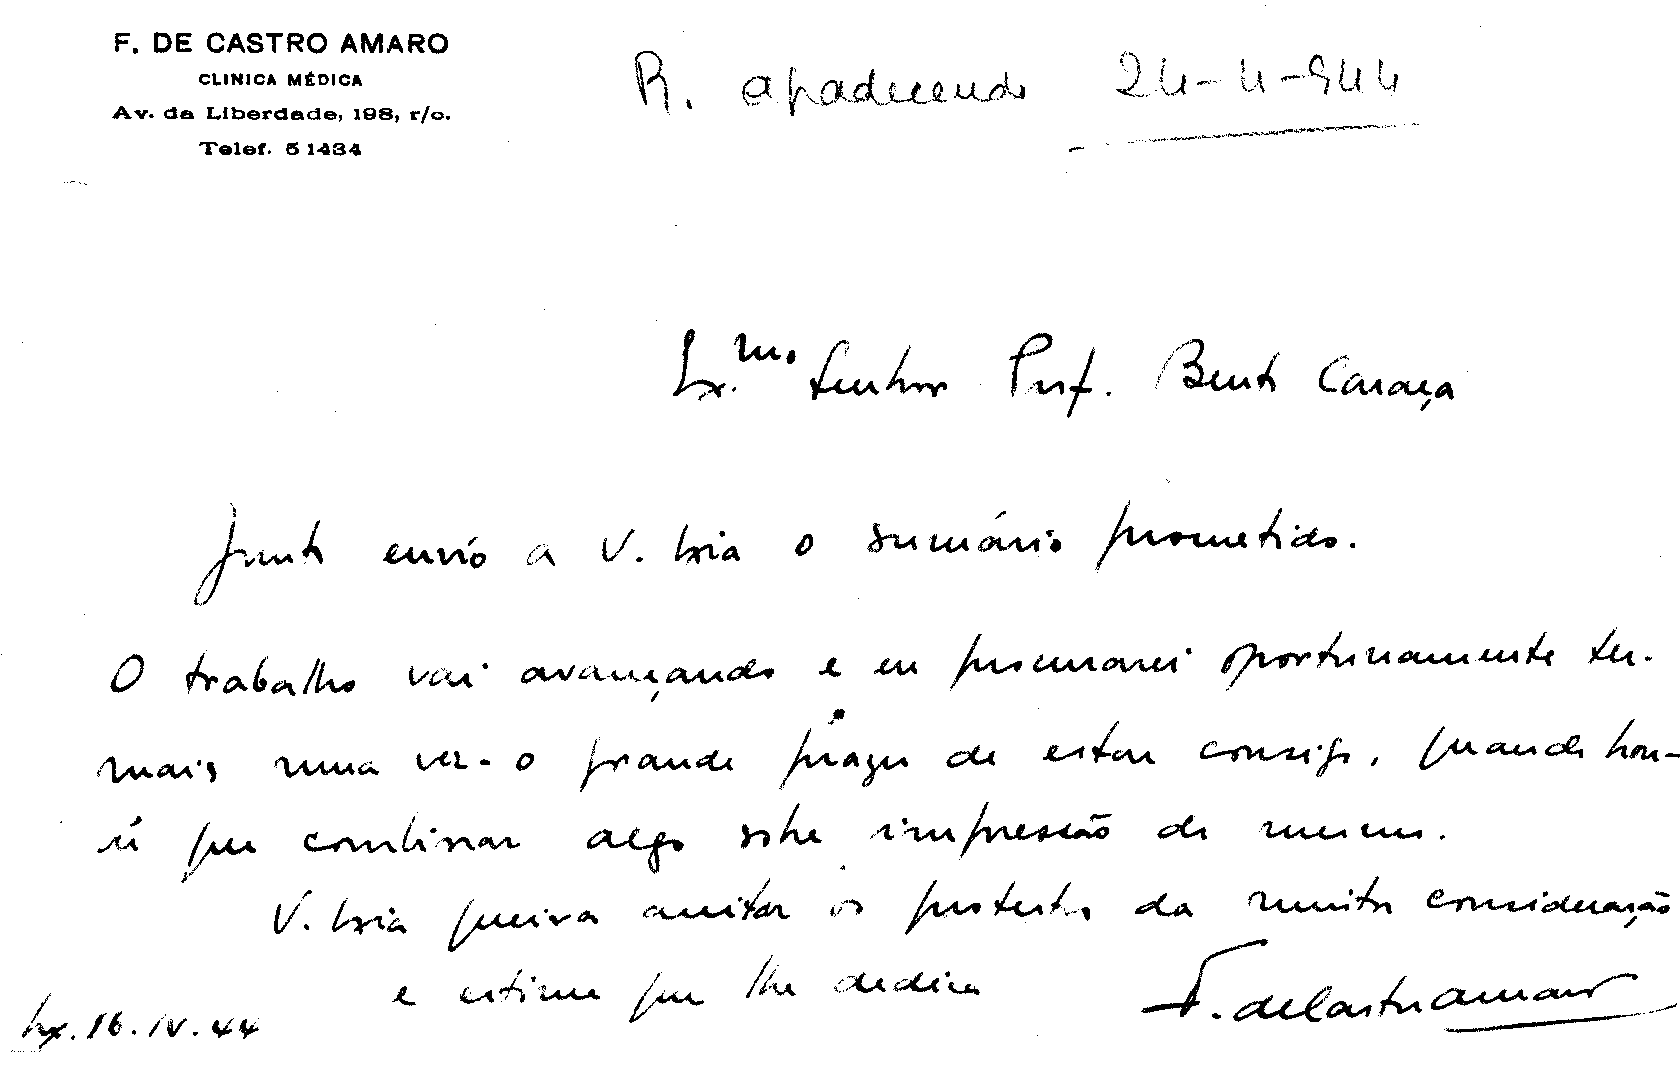 F. DE CASTRO AMARO
CLINICA MÉDICA
Av. da Liberdade, 198, r/c.
Telef. 5 1434
R. agradecendo 24-4-944
Ex.mo Senhor Prof. Bento Caraça
Junto envio a V. Exia o sumário prometido.
O trabalho vai avançando e eu procurarei oportunamente ter.
mais uma vez - o grande prazer de estar consigo, quando hou-
er que combinar algo sobre impressão do mesmo.
V. Exia queira aceitar os protestos da muita consideração
e estima que lhe dedica
F. de Castro Amaro
Lx. 16. IV. 44